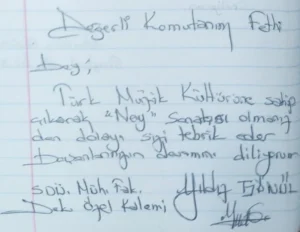 Değerli Komutanım Fethi
Bey;
Türk Müzik Kültürüne sahip
çıkarak "Ney" Sanatçısı olmanız
dan dolayı sizi tebrik eder
başarılarınızın devamını diliyorum
SDÜ. Müh. Fak. Yıldız
Dek. Özel Kalemi